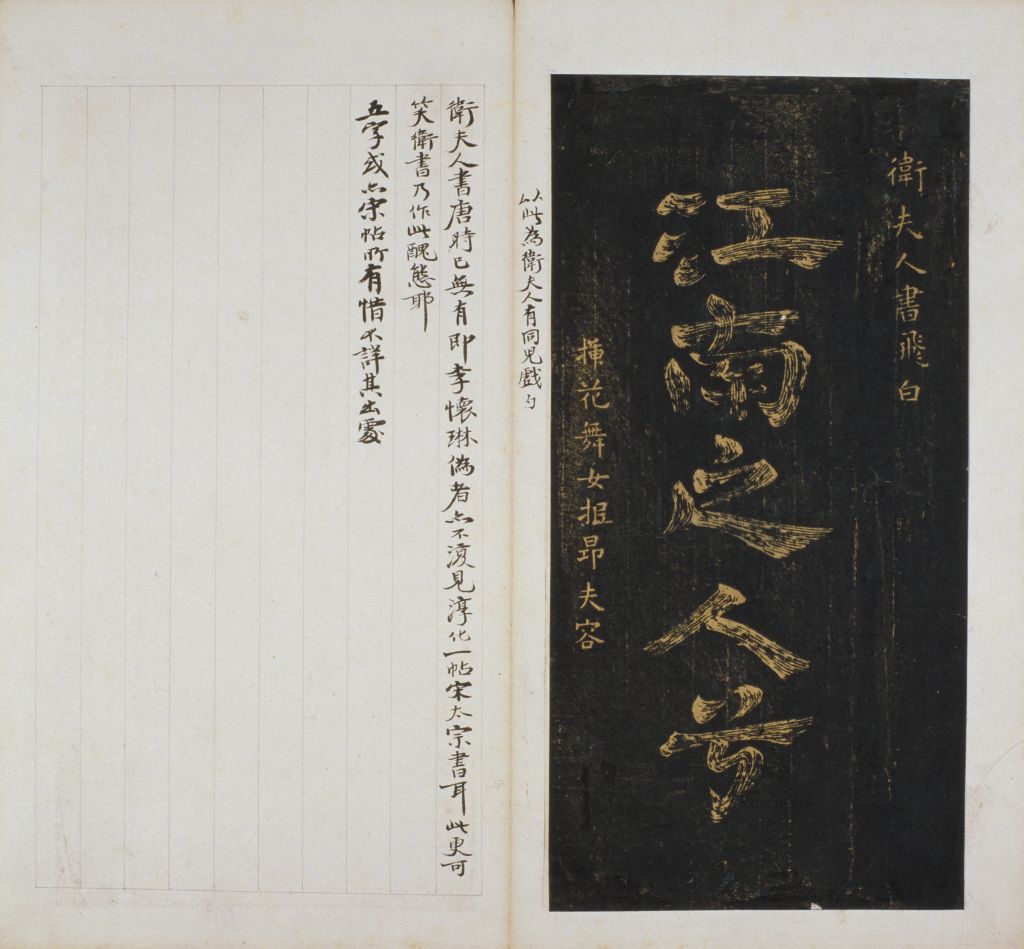 衛夫人書飛白
江南之人兮
插花舞女掋昂夫容
以此為衛夫人有同兒戲
衛夫人書唐時已無有即李懷琳偽者亦不復見淳化一帖宋太宗書耳此更可
笑衛書乃作此醜態耶
五字或亦宋帖所有惜不詳其出處